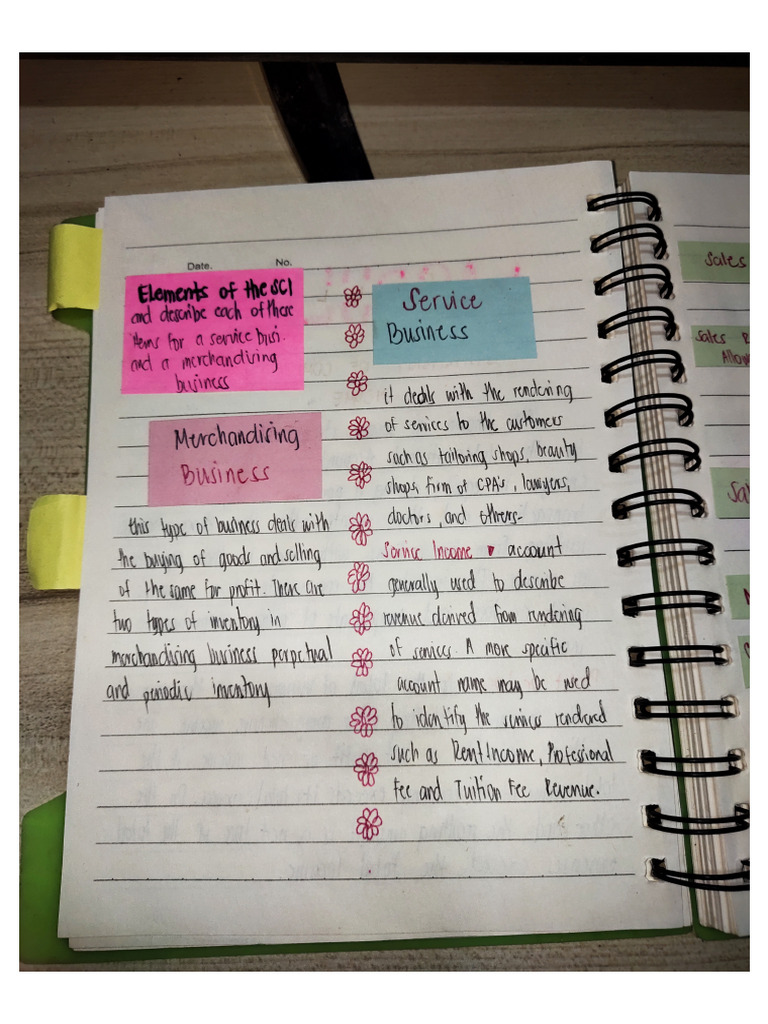 Date.
No.
Elements of the SCI
and describe each of these
items for a service busi.
and a merchandising
business
Merchandising
Business
this type of business deals with
the buying of goods and selling
of the same for profit. There are
two types of inventory in
merchandising business perpetual
and periodic inventory
Service
Business
it deals with the rendering
of services to the customers
such as tailoring shops, beauty
shops, firm of CPA's, lawyers,
doctors, and others-
Service Income account
generally used to describe
revenue derived from rendering
of services. A more specific
account name may be used
to identify the services rendered
such as Rent Income, Professional
Fee and Tuition Fee Revenue.
Sales
Sales R
Allow
Sal